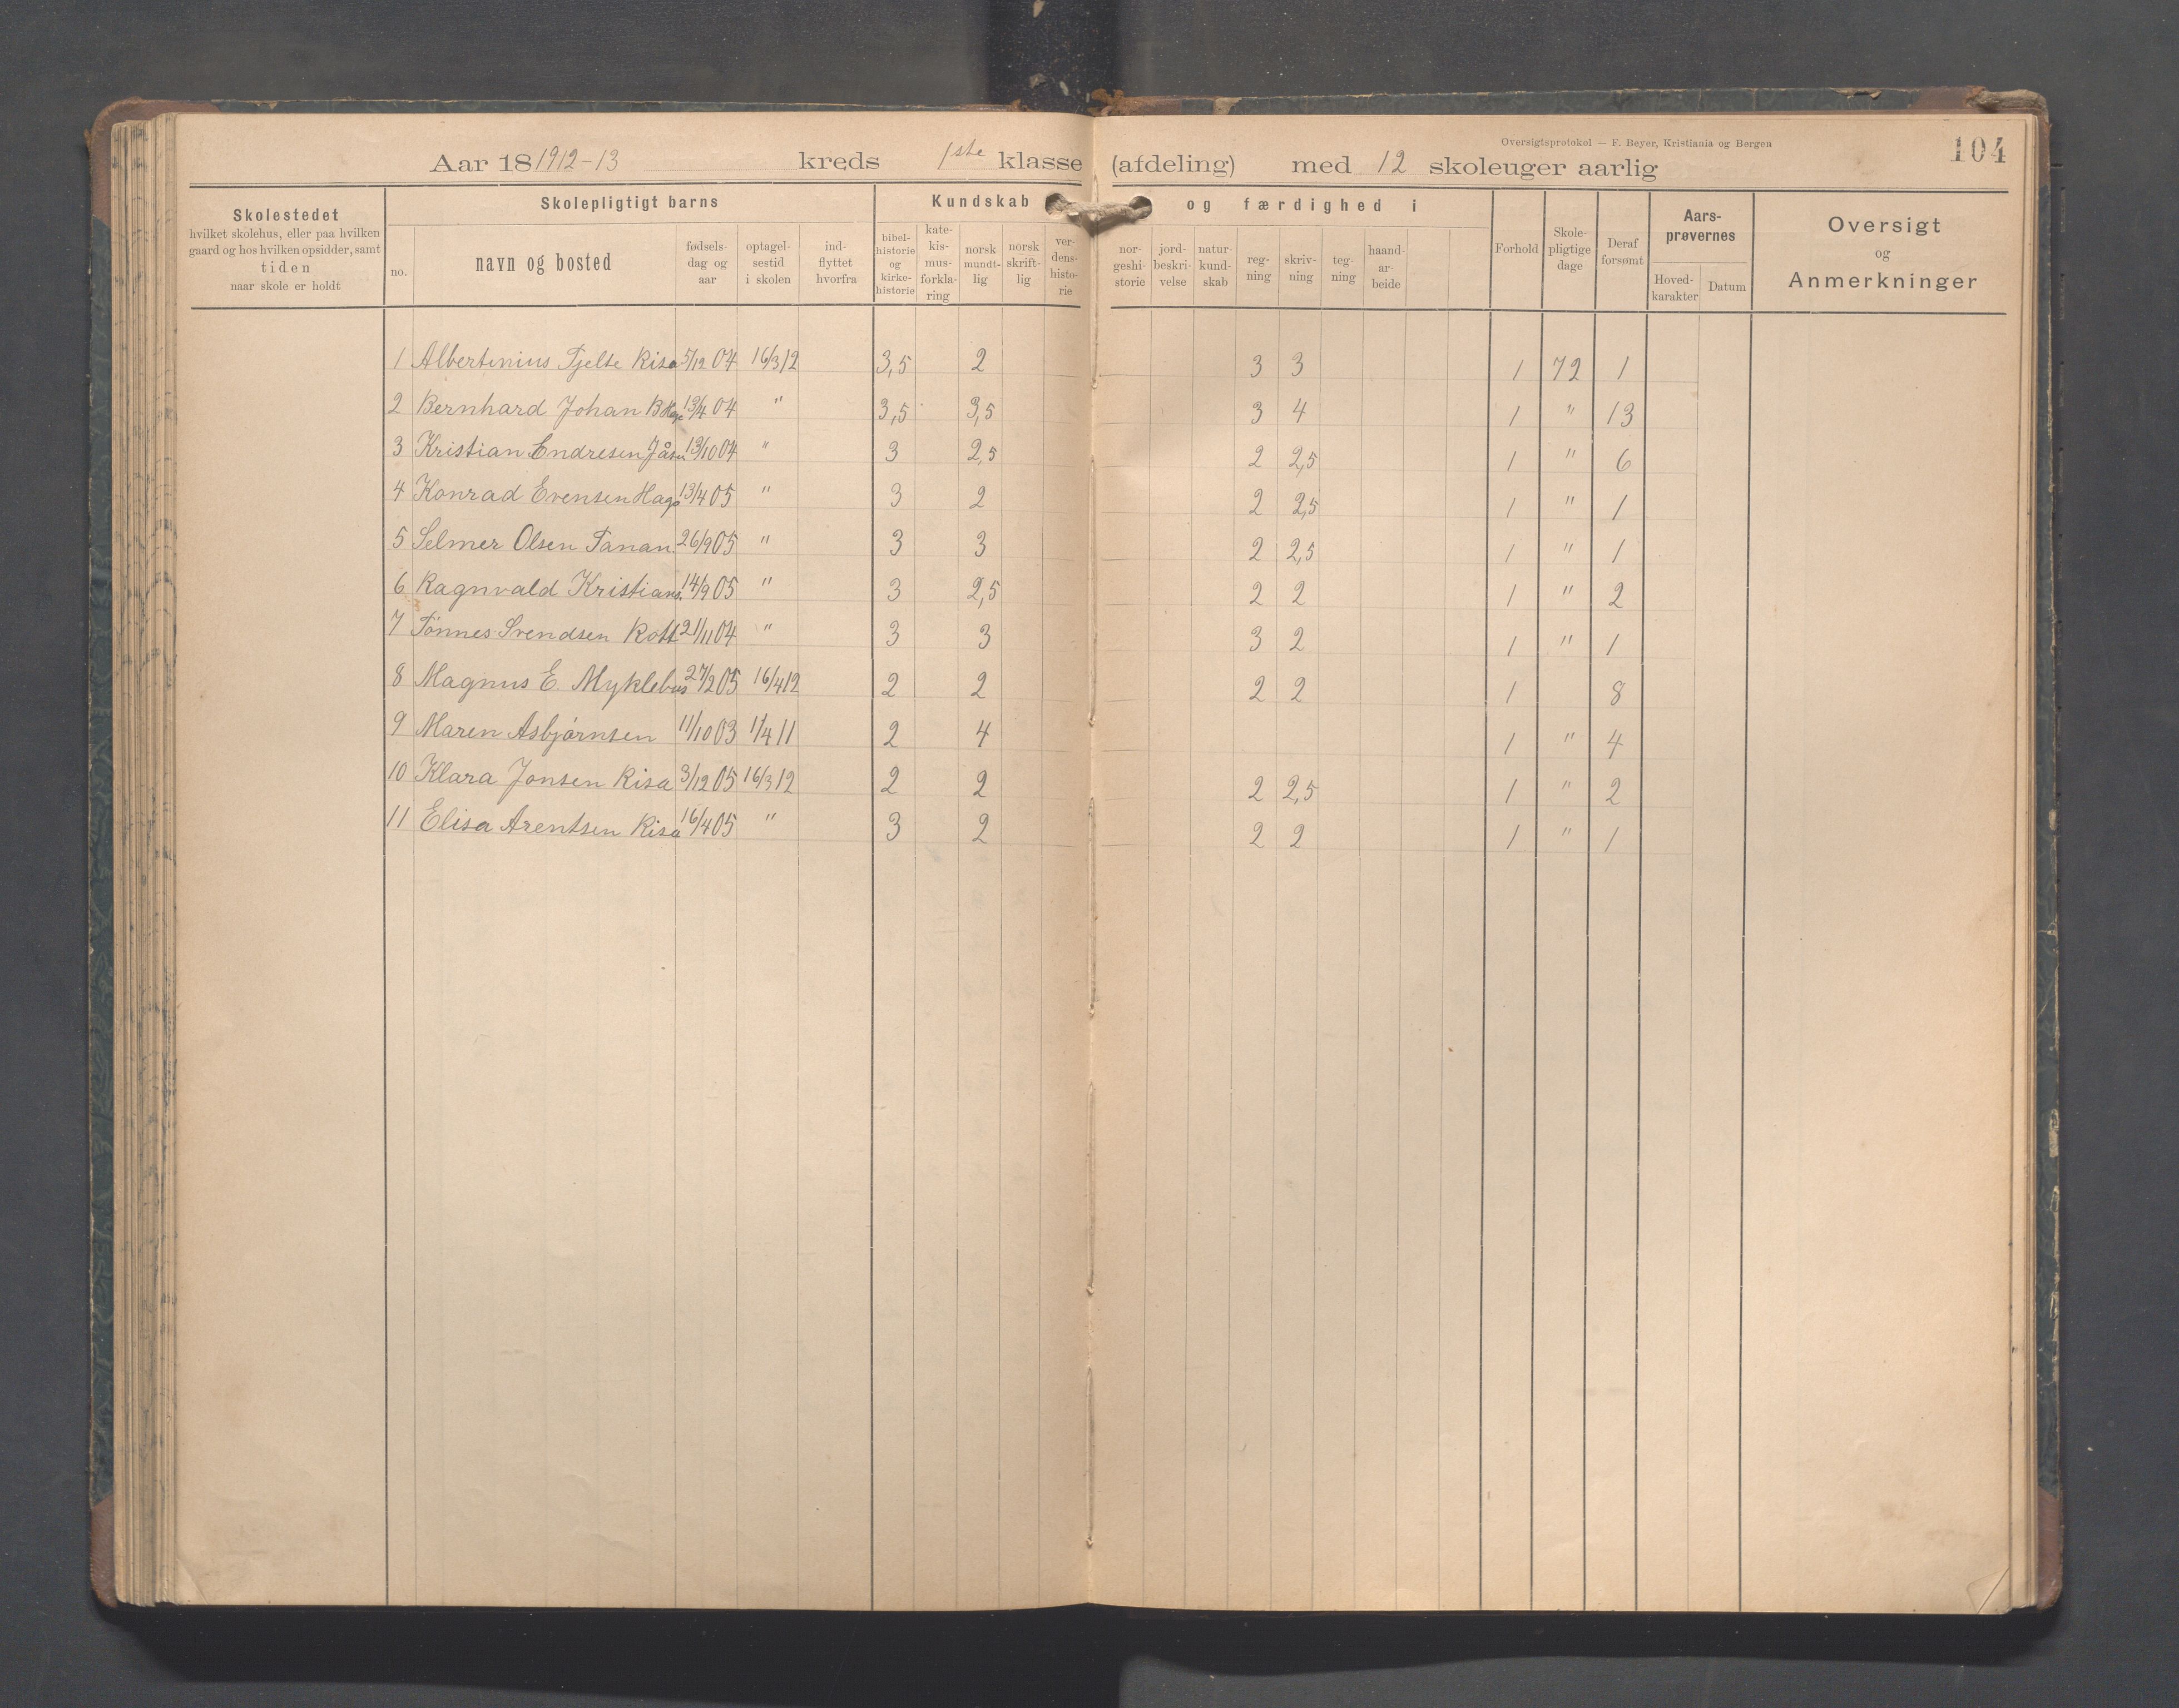 Oversigtsprotokol — F. Beyer, Kristiania og Bergen
104
Aar 18 1912-13 kreds 1ste klasse (afdeling) med 12 skoleuger aarlig
Skolestedet
hvilket skolehus, eller paa hvilken
gaard og hos hvilken opsidder, samt
tiden
naar skole er holdt
Skolepligtigt barns
no.
navn og bosted
fødsels-
dag og
aar
optagel-
sestid
i skolen
ind-
flyttet
hvorfra
Kundskab og færdighed i
bibel-
historie
og
kirke-
historie
kate-
kis-
mus-
forkla-
ring
norsk
mundt-
lig
norsk
skrift-
lig
ver-
dens-
histo-
rie
nor-
geshi-
storie
jord-
beskri-
velse
natur-
kund-
skab
reg-
ning
skriv-
ning
teg-
ning
haand-
ar-
beide
Forhold
Skole-
pligtige
dage
Deraf
forsømt
Aars-
prøvernes
Hoved-
karakter
Datum
Oversigt
og
Anmerkninger
1 Albertinius Tjelte Risa 5/12 04 16/3 12 3,5 2 3 3 1 72 1
2 Bernhard Johan B 13/4 04 " 3,5 3,5 3 4 1 " 13
3 Kristian Endresen 13/10 04 " 3 2,5 2 2,5 1 " 6
4 Konrad Evensen Hage 13/4 05 " 3 2 2 2,5 1 " 1
5 Selmer Olsen Tanan. 26/9 05 " 3 3 2 2,5 1 " 1
6 Ragnvald Kristians. 14/9 05 " 3 2,5 2 2 1 " 2
7 Tönnes Svendsen Rott 21/11 04 " 3 3 3 2 1 " 1
8 Magnus E. Myklebus 27/2 05 16/4 12 2 2 2 2 1 8
9 Maren Asbjørnsen 11/10 03 1/4 11 2 4 1 " 4
10 Klara Jonsen Risa 3/12 05 16/3 12 2 2 2 2,5 1 " 2
11 Elisa Arentsen Risa 16/4 05 " 3 2 2 2 1 " 1